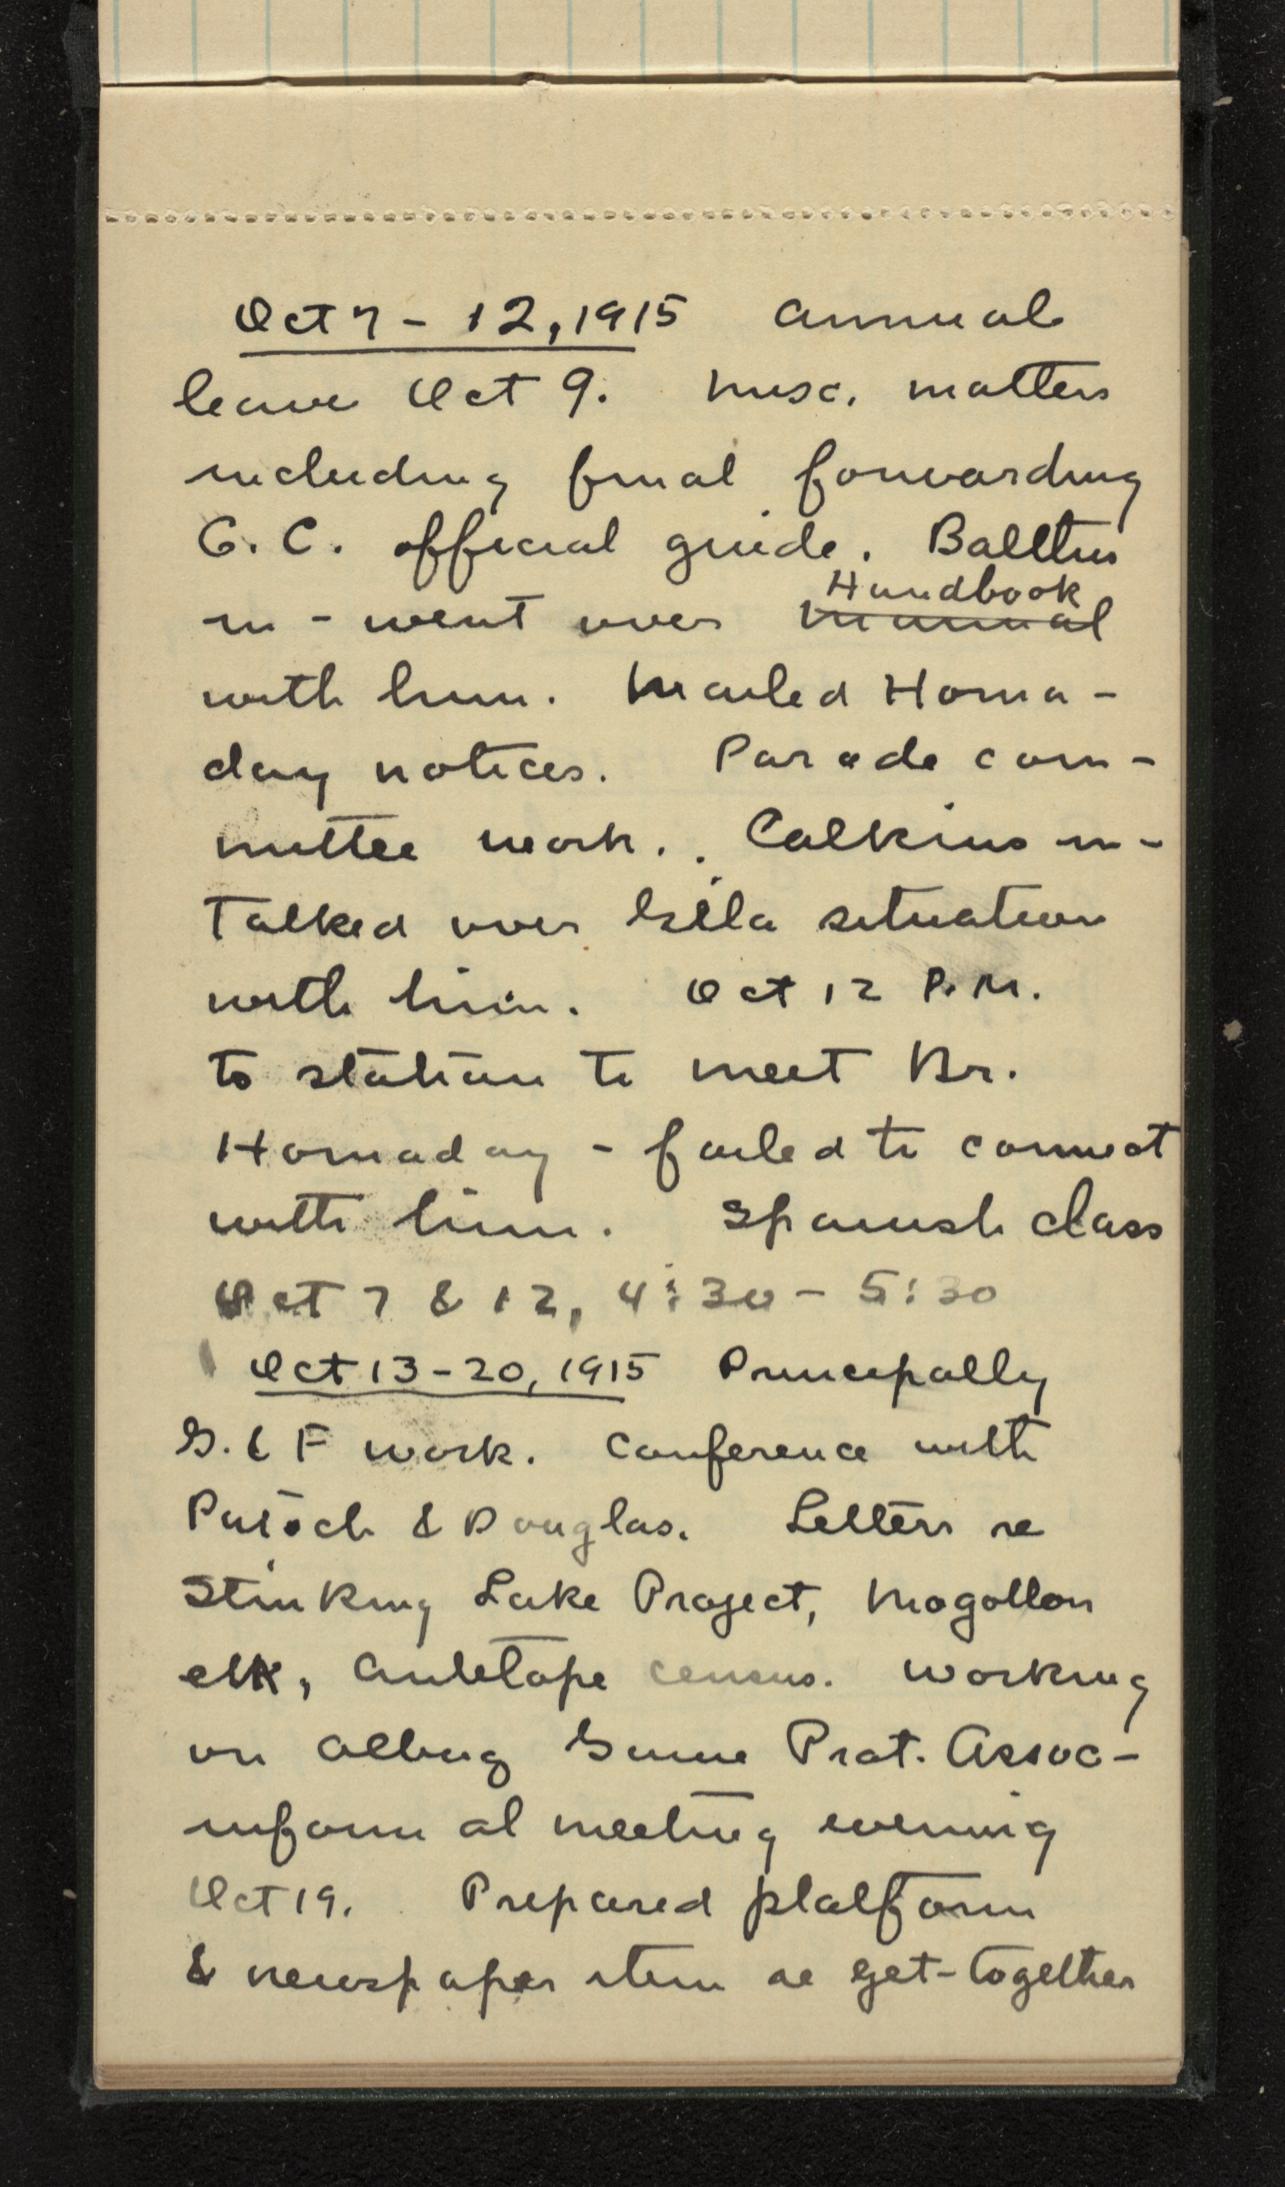 Oct 7 - 12, 1915 Annual
leave Oct 9. Misc. matters
including final forwarding
G. C. official guide. Balthis
in - went over Handbook
Manual
with him. Mailed Horna-
day notices. Parade com-
mittee work. Calkins in -
Talked over Gila situation
with him. Oct 12 P.M.
to station to meet Dr.
Hornaday - failed to connect
with him. Spanish class
Oct 7 & 12, 4:30 - 5:30
Oct 13-20, 1915 Principally
G. & F work. Conference with
& Douglas. Letters re
Stinking Lake Project, Mogollon
elk, Antelope census. Working
on Albuq Game Prot. Assoc -
informal meeting evening
Oct 19. Prepared platform
& newspaper item re get-together